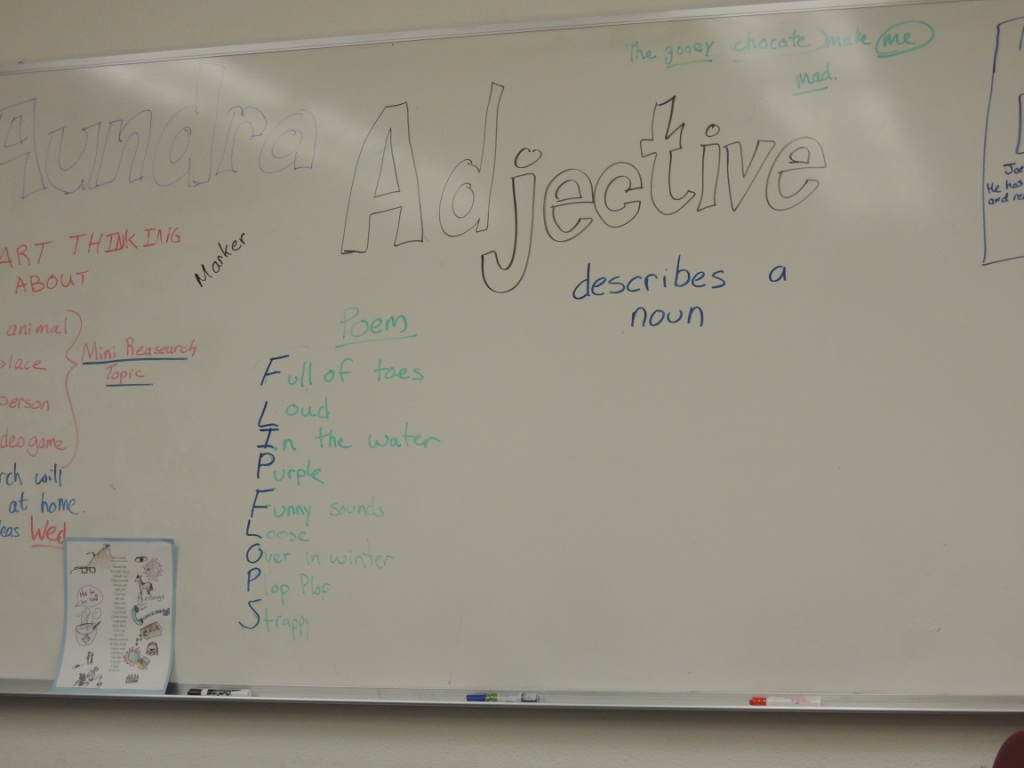 The gooey chocate make me
mad.
Aundra
Adjective
describes a
noun
ART THINKING
ABOUT
animal
place
person
deogame
Mini Reasearch
Topic
rch will
at home.
eas Wed
Marker
Poem
Full of toes
Loud
In the water
Purple
Funny sounds
Loose
Over in winter
Plop Plop
Strappy
He has
and re